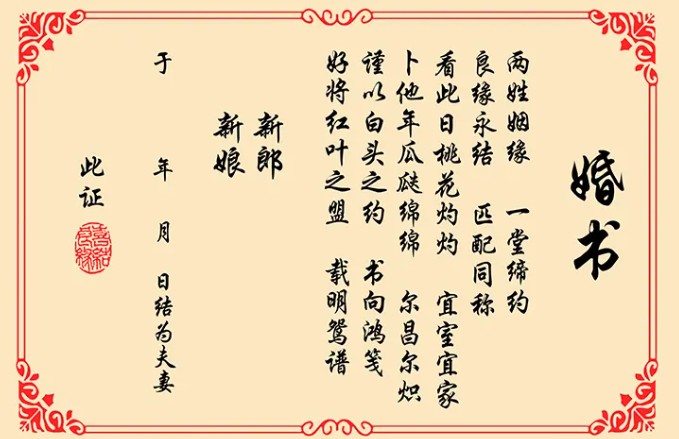 婚书
两姓姻缘 一堂缔约
良缘永结 匹配同称
看此日桃花灼灼 宜室宜家
卜他年瓜瓞绵绵 尔昌尔炽
谨以白头之约 书向鸿笺
好将红叶之盟 载明鸳谱
新郎
新娘
于 年 月 日结为夫妻
此证
喜结良缘